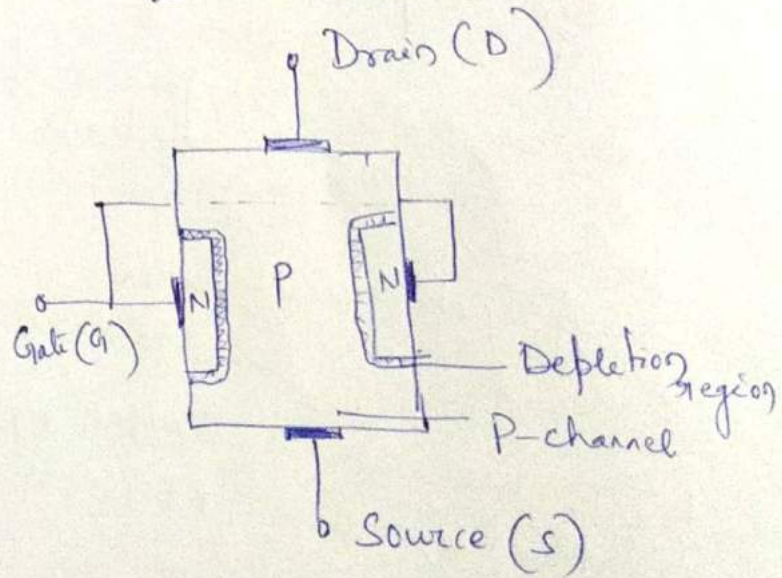 Drain (D)
N
P
N
Gate (G)
Depletion
region
P-channel
Source (S)